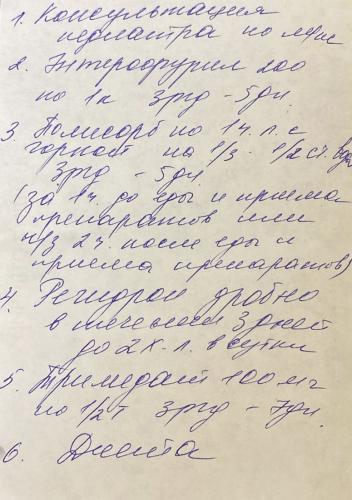 1. Консультация
педиатра по м/ж
2. Энтерофурил 200
по 1к 3рд - 5дн.
3 Полисорб по 1ч.л. с
горкой на 1/3 - 1/2 ст. воды
3рд - 5дн
(за 1ч. до еды и приема
препаратов или
ч/з 2ч. после еды и
приема препаратов)
4. Регидрон дробно
в течении 3 дней
до 2х л. в сутки
5. Тримедат 100мг
по 1/2т 3рд - 7дн.
6. Диета